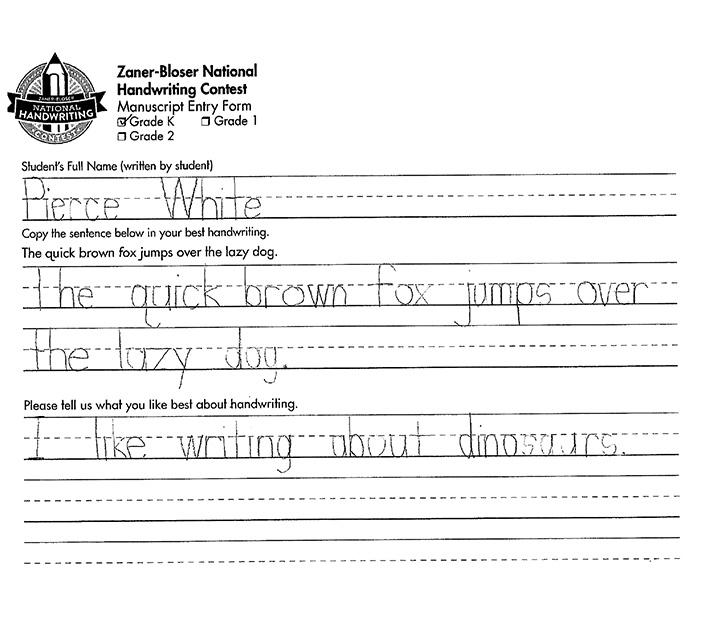 ZANER-BLOSER
NATIONAL
HANDWRITING
CONTEST
Zaner-Bloser National
Handwriting Contest
Manuscript Entry Form
☑ Grade K ☐ Grade 1
☐ Grade 2
Student's Full Name (written by student)
Pierce White
Copy the sentence below in your best handwriting.
The quick brown fox jumps over the lazy dog.
The quick brown fox jumps over
the lazy dog.
Please tell us what you like best about handwriting.
I like writing about dinosaurs.